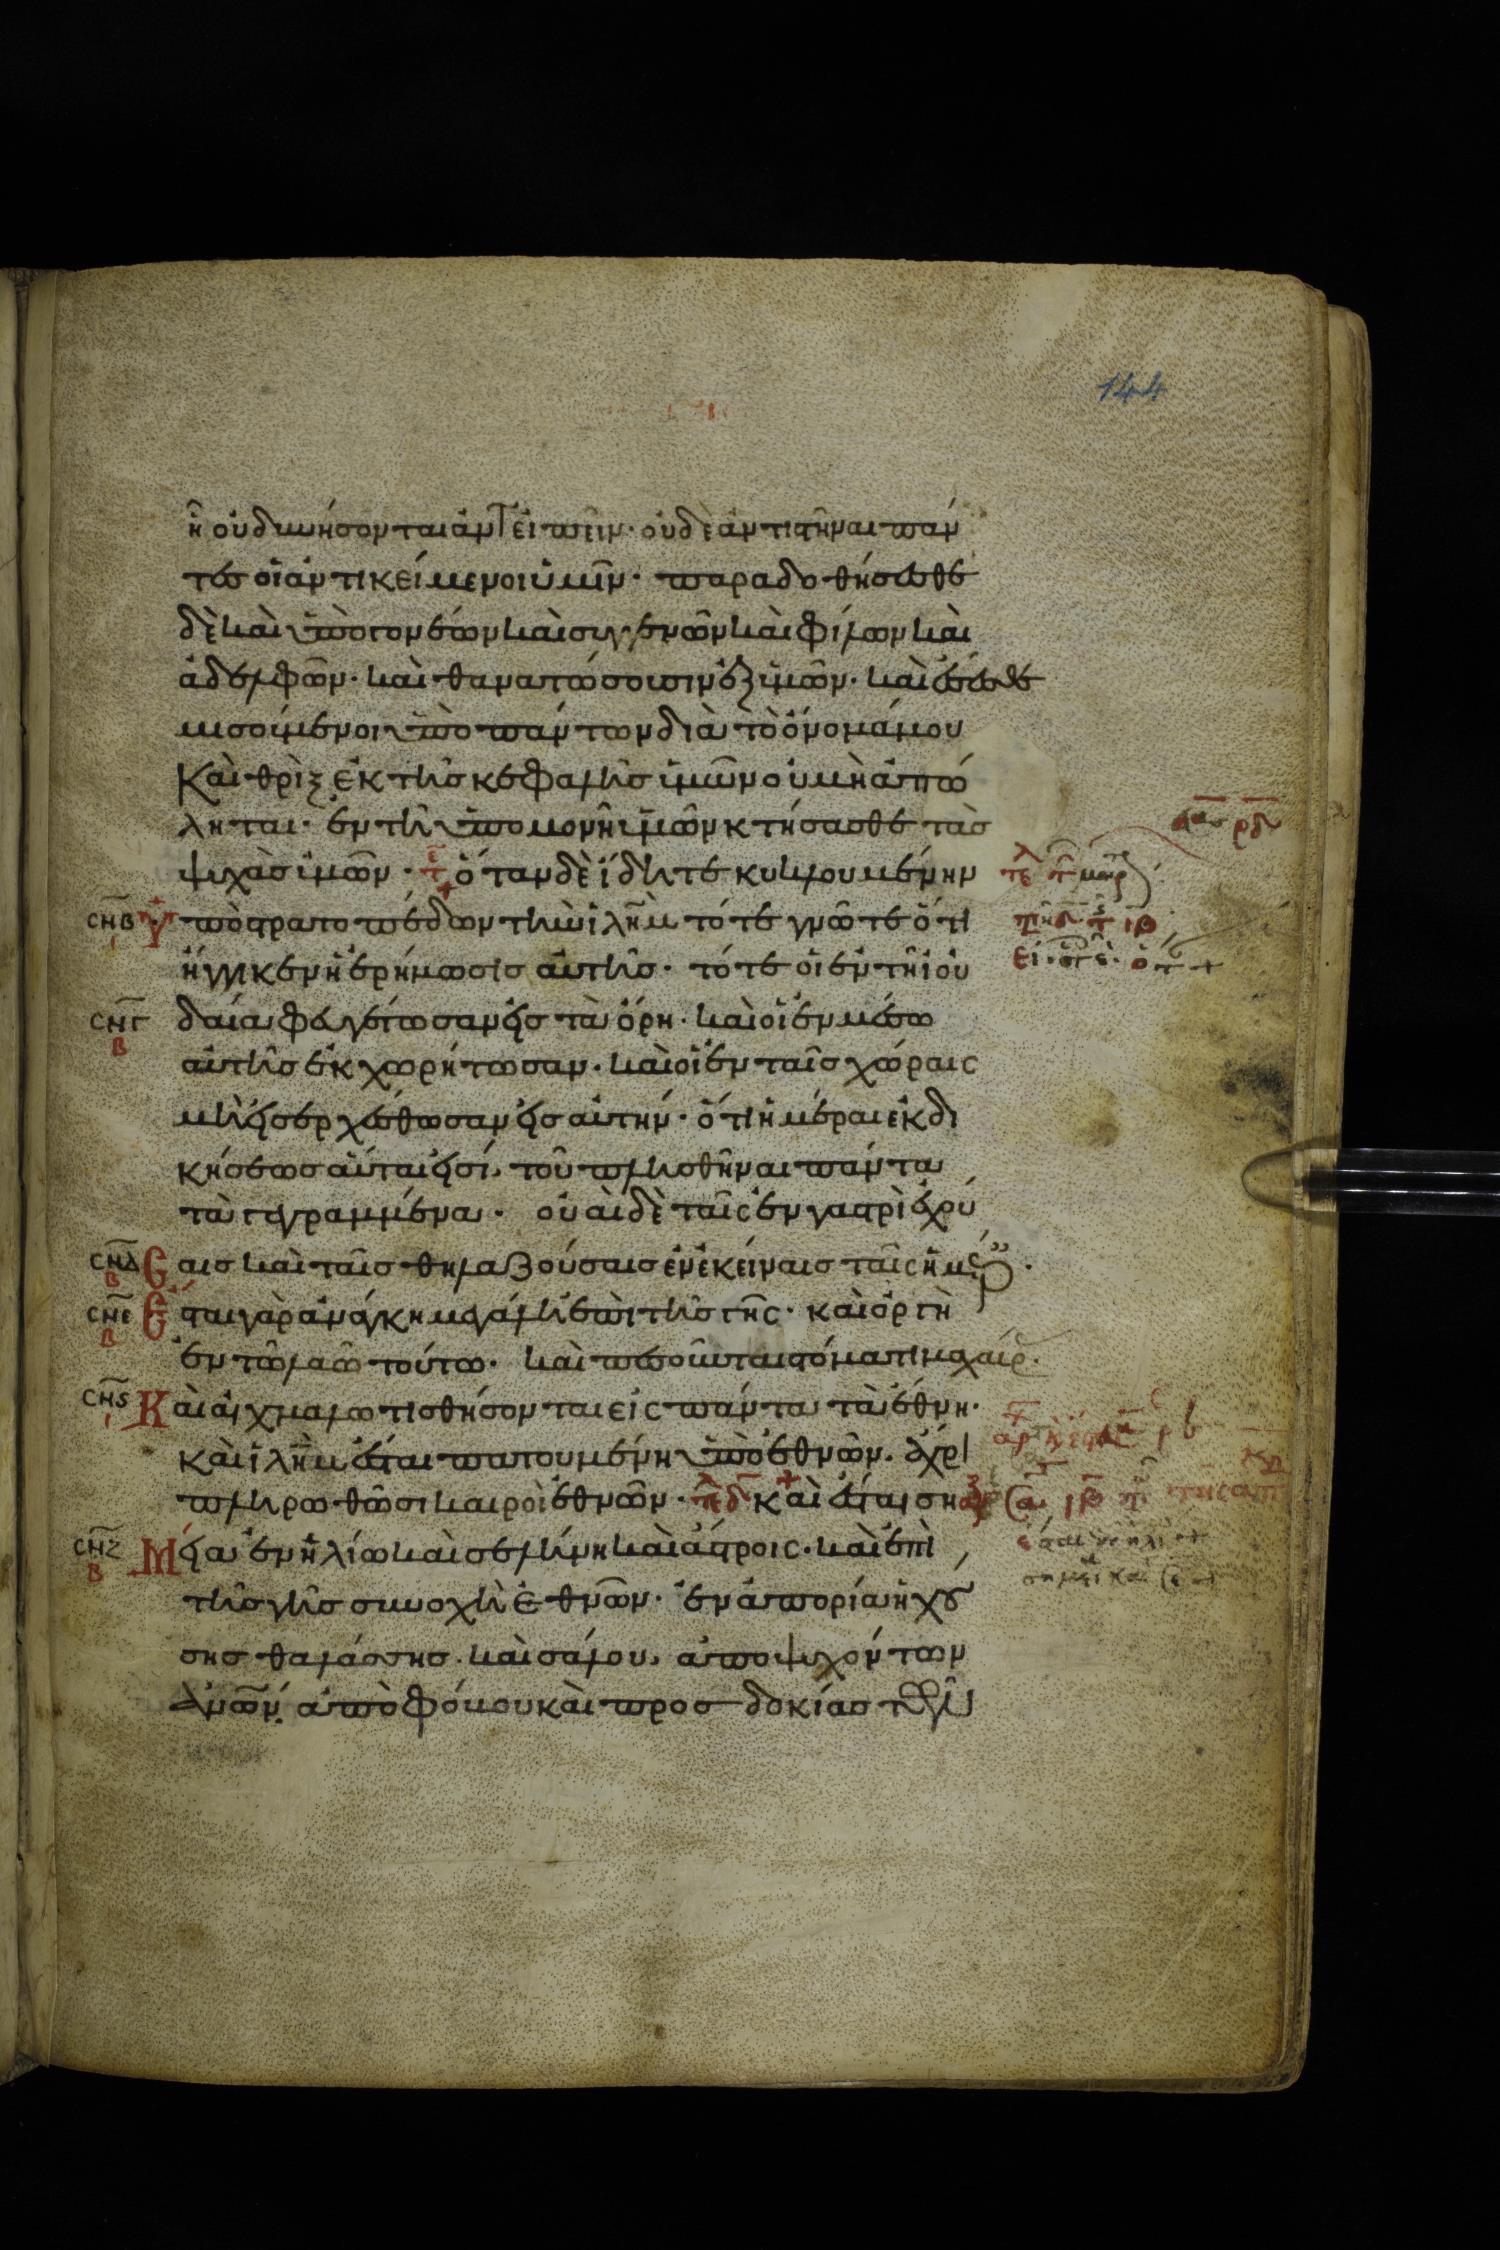 144
ἢ οὐ δυνήσονται ἀντειπεῖν· οὐδὲ ἀντιστῆναι πάν
τες οἱ ἀντικείμενοι ὑμῖν· παραδοθήσεσθε
δὲ καὶ ὑπὸ γονέων καὶ συγγενῶν καὶ φίλων καὶ
ἀδελφῶν· καὶ θανατώσουσιν ἐξ ὑμῶν· καὶ ἔσεσθε
μισούμενοι ὑπὸ πάντων διὰ τὸ ὄνομά μου
Καὶ θρὶξ ἐκ τῆς κεφαλῆς ὑμῶν οὐ μὴ ἀπό
ληται· ἐν τῇ ὑπομονῇ ὑμῶν κτήσασθε τὰς
ψυχὰς ὑμῶν· ὅταν δὲ ἴδητε κυκλουμένην
ϲ̅η̅β̅ ὑπὸ στρατοπέδων τὴν ἰλη̅μ τότε γνῶτε ὅτι
ἤγγικεν ἡ ἐρήμωσις αὐτῆς· τότε οἱ ἐν τῇ ἰου
ϲ̅η̅γ̅ δαία φευγέτωσαν εἰς τὰ ὄρη· καὶ οἱ ἐν μέσω
β
αὐτῆς ἐκχωρήτωσαν· καὶ οἱ ἐν ταῖς χώραις
μὴ εἰσερχέσθωσαν εἰς αὐτήν· ὅτι ἡμέραι ἐκδι
κήσεως αὗταί εἰσι, τοῦ πλησθῆναι πάντα
τὰ γεγραμμένα· οὐαὶ δὲ ταῖς ἐν γαστρὶ ἐχού
ϲ̅η̅δ̅ β σαις καὶ ταῖς θηλαζούσαις ἐν ἐκείναις ταῖς ἡμέρ·
ϲ̅η̅ε̅ β Ἔσται γὰρ ἀνάγκη μεγάλη ἐπὶ τῆς γῆς· καὶ ὀργὴ
ἐν τῶ λαῶ τούτω· καὶ πεσοῦνται στόματι μαχαίρ·
ϲ̅η̅ϛ̅ Καὶ αἰχμαλωτισθήσονται εἰς πάντα τὰ ἔθνη·
καὶ ἰλη̅μ ἔσται πατουμένη ὑπὸ ἐθνῶν· ἄχρι
πληρωθῶσι καιροὶ ἐθνῶν· καὶ ἔσται ση
ϲ̅η̅ζ̅ β Μεῖα ἐν ἡλίω καὶ σελήνη καὶ ἄστροις· καὶ ἐπὶ
τῆς γῆς συνοχὴ ἐθνῶν· ἐν ἀπορία ἠχού
σης θαλάσσης· καὶ σάλου, ἀποψυχόντων
ἀν̅ω̅ν· ἀπὸ φόβου καὶ προσδοκίας τῶν